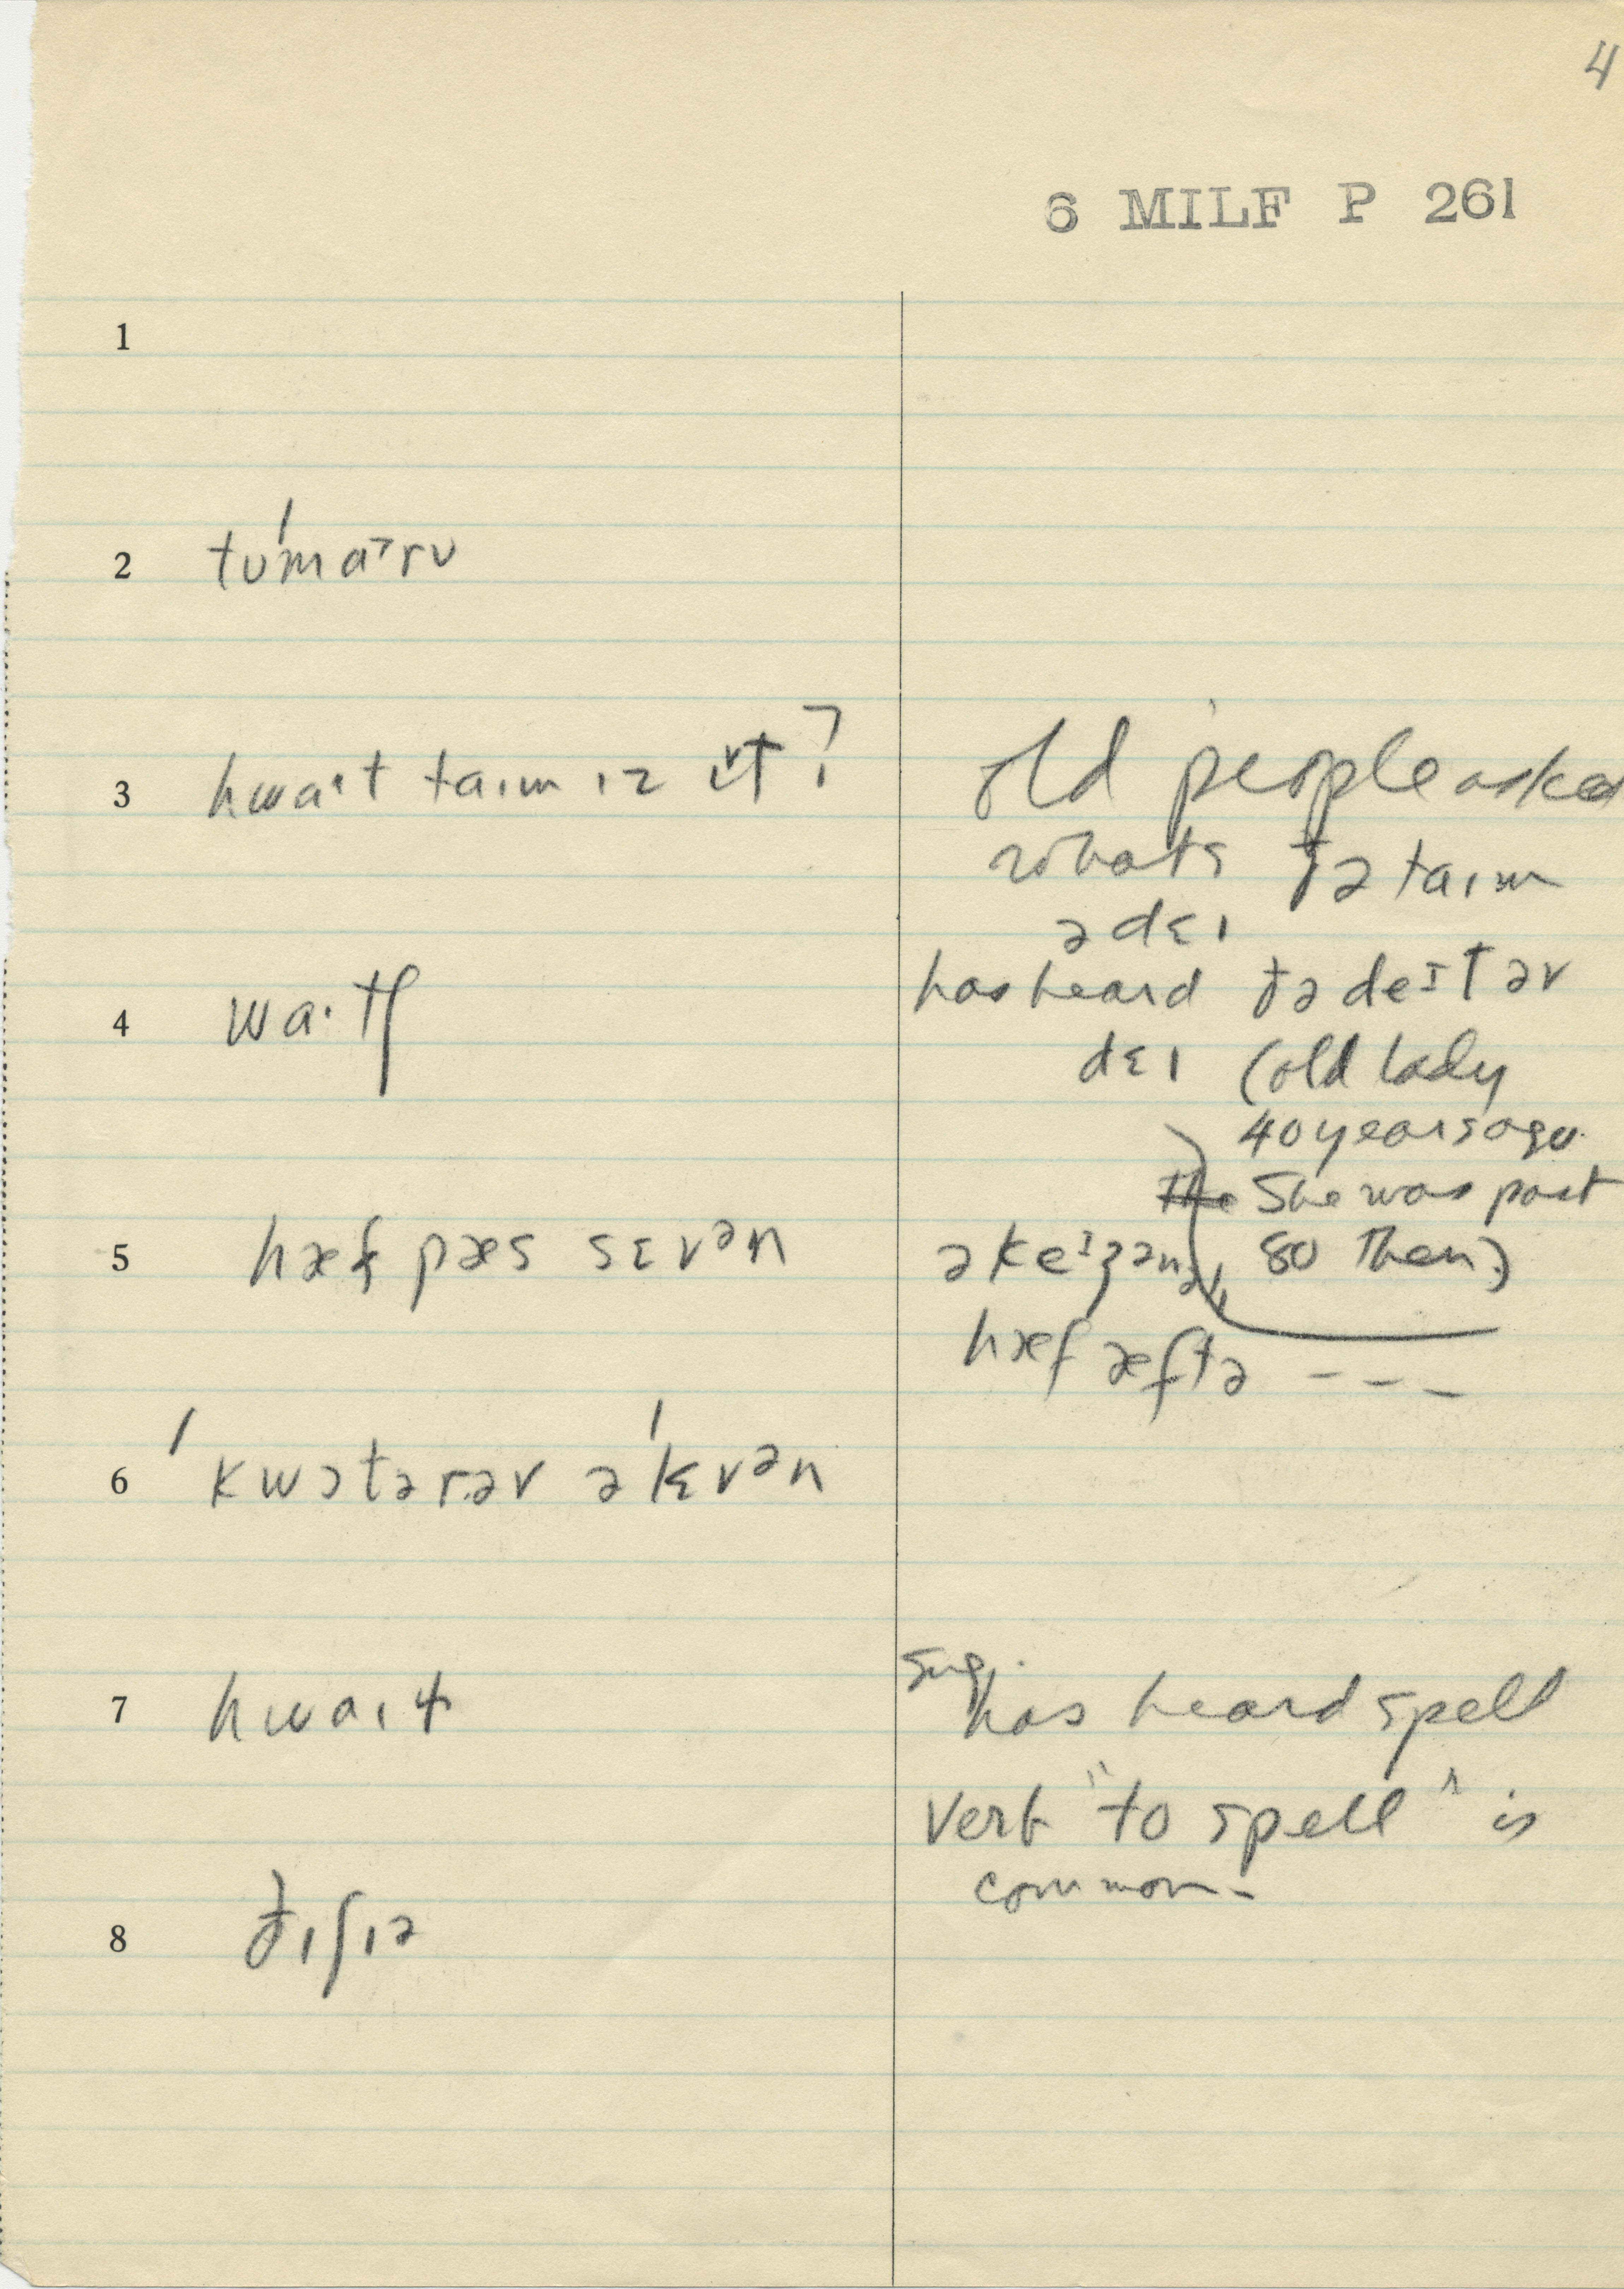 4
6 MILF P 261
1
2 tʊˈmɑ˃rʊ
3 hwɑ·t taɪm ɪz ɪ˅t?
old people asked
whats ðə taɪm
ə dɛɪ
has heard ðə deɪt əv
dɛɪ (old lady
40 years ago.
The She was past
80 then)
4 wɑ·tʃ
5 hæf pæs sɛvᵊn
əkeɪʒənəlɪ
hæf æftə ---
6 ˈkwɔtər.əv əˈlɛvᵊn
7 hwaɪɫ
sug. has heard spell
verb "to spell" is
common -
8 ðɪʃɪə